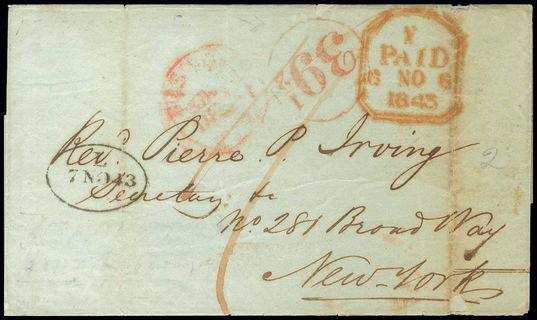 Y
PAID
NO 6
1843
L
7 NO 43
Revd. Pierre P. Irving
Secretary &c
No. 281 Broad Way
New-York
2